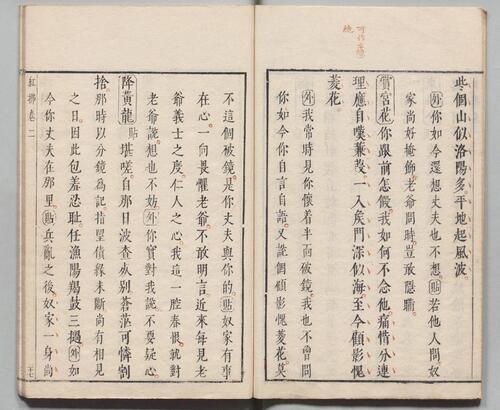 可作妾想
些個山似洛陽多平地起風波
外你如今還想丈夫也不想貼若他人問奴
家尚好掩飾老爺問時豈敢隱瞞
賞宮花你跟前怎假我如何不念他痛惜分連
理應自嘆兼葭一入矦門深似海至今顧影愧
菱花
外我常時見你懷着半面破鏡我也不曾問
你如今你自言自語又說個顧影愧菱花莫
不這個破鏡是你丈夫與你的貼奴家有事
在心一向畏懼老爺不敢明言近來每見老
爺義士之度仁人之心我這一腔春恨就對
老爺說想也不妨外你實對我說不要疑心
降黃龍貼堪嗟自那日波查永別蒼茫可憐割
捨那時以分鏡為記指望債緣未斷尚有相見
之日因此包羞忍耻任漁陽羯鼓三撾外如
今你丈夫在那里貼兵亂之後奴家一身尚
紅拂卷二